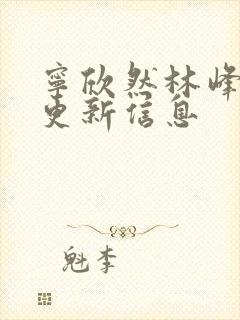 寧欣然林峰
更新信息
魁李